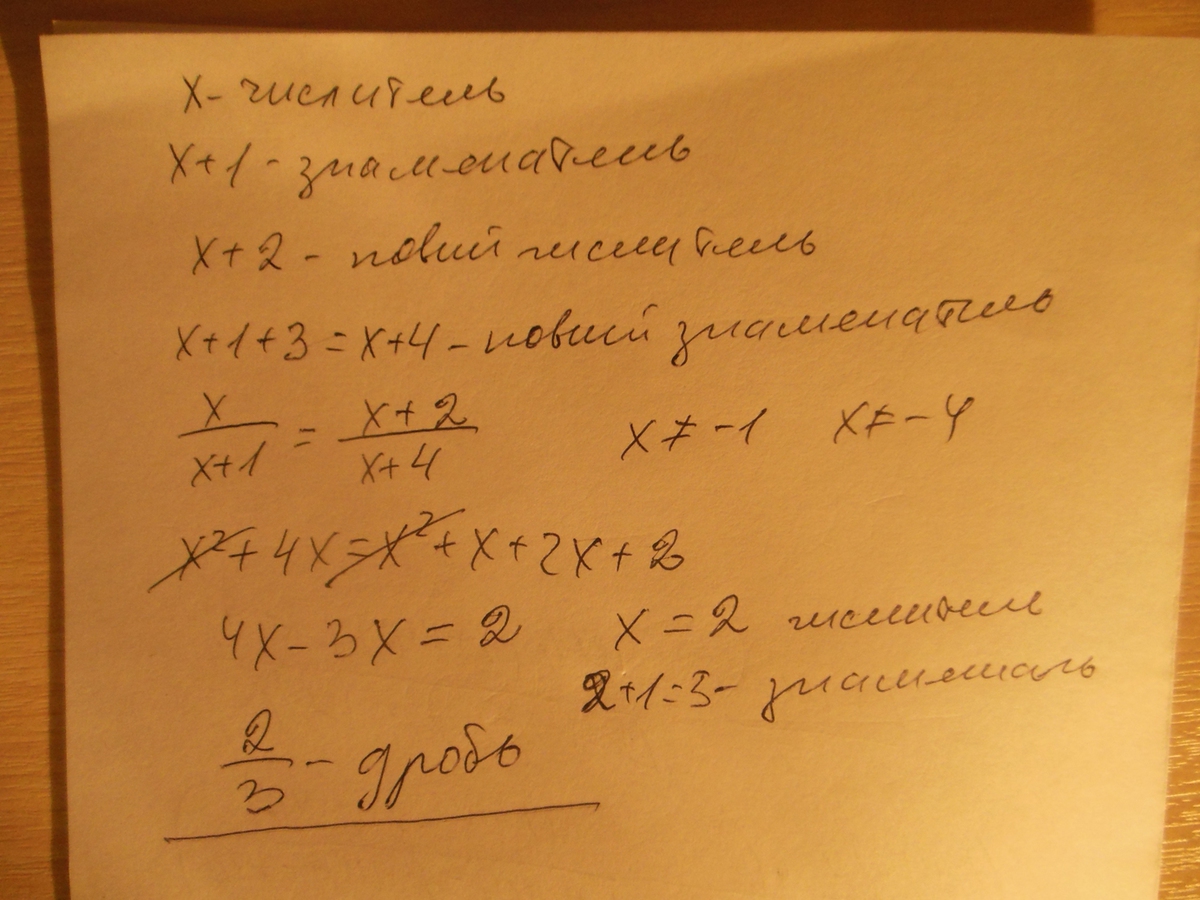 x - числитель
x+1 - знаменатель
x+2 - новий числитель
x+1+3=x+4 - новий знаменатель
x/(x+1) = (x+2)/(x+4) x≠-1 x≠-4
x²+4x=x²+x+2x+2
4x-3x=2 x=2 числитель
2+1=3 - знаменатель
2/3 - дробь